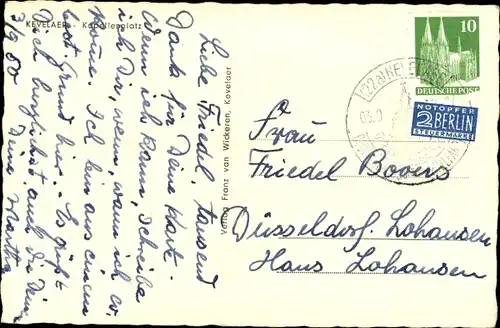 KEVELAER - Kapellenplatz
Liebe Friedel, tausend
Dank für Deine Karte.
Wenn ich kann, schreibe
ich Dir, wenn, wann ich
komme. Ich bin aus einem
Grund hier. Es grüßt
Dich herzlichst auch die Deinen
Deine Martha
3/9 50
Verlag Franz van Wickeren, Kevelaer
10
DEUTSCHE POST
NOTOPFER
2 BERLIN
STEUERMARKE
(22a) KEVELAER
Frau
Friedel
Düsseldorf. Lohausen
Haus Lohausen